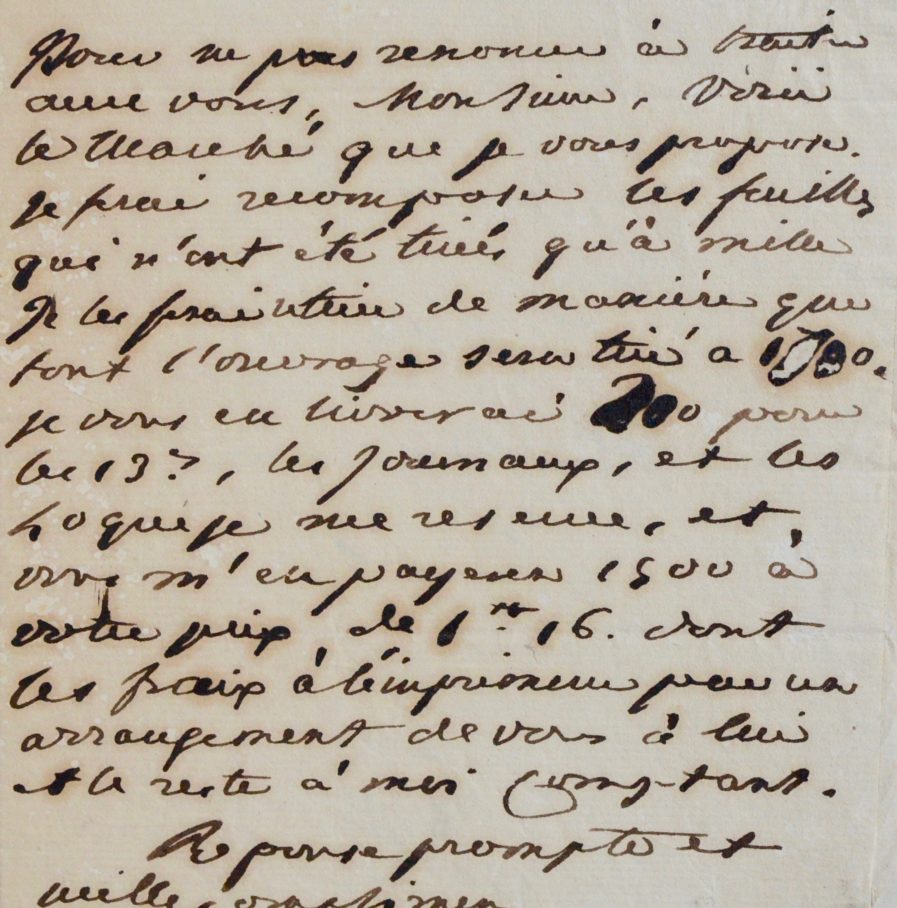 Pour ne pas renoncer à traiter
avec vous, Monsieur, voici
le Marché que je vous propose.
je ferai recomposer les feuilles
qui n'ont été tirées qu'à mille
Je les ferai tirer de manière que
tout l'ouvrage sera tiré a
je vous en livrerai pour
les 13es, les journaux, et les
que je me reserve, et
vous m'en payerez 1500 à
votre prix de 16. dont
les fraix à l'imprimeur par un
arrangement de vous à lui
et le reste à moi comptant.
Reponse prompte et
mille complimens